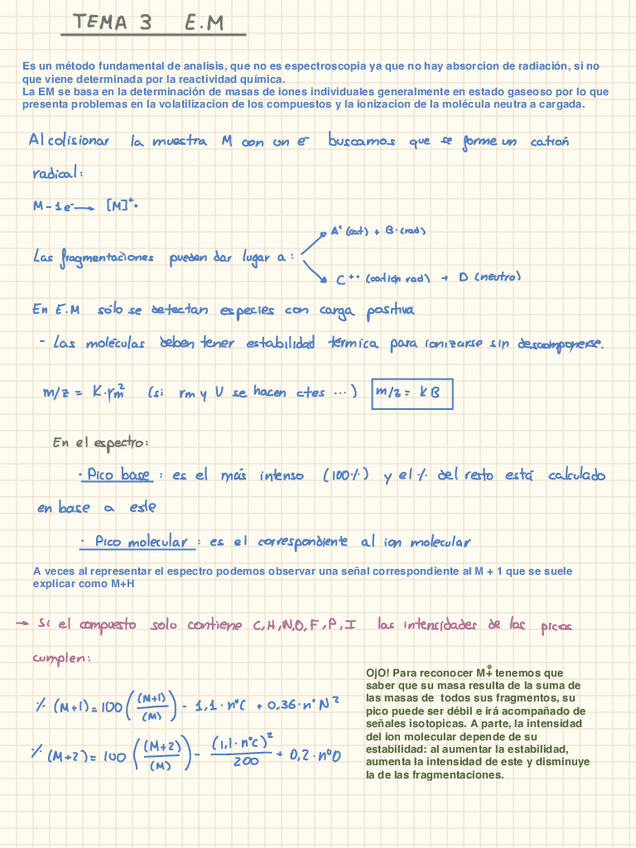 TEMA 3 E.M
Es un método fundamental de analisis, que no es espectroscopia ya que no hay absorcion de radiación, si no
que viene determinada por la reactividad química.
La EM se basa en la determinación de masas de iones individuales generalmente en estado gaseoso por lo que
presenta problemas en la volatilizacion de los compuestos y la ionizacion de la molécula neutra a cargada.
Al colisionar la muestra M con un e⁻ buscamos que se forme un catión
radical:
M - 1e⁻ → [M]⁺·
A⁺ (cat) + B· (rad)
Las fragmentaciones pueden dar lugar a:
C⁺· (catión rad) + D (neutro)
En E.M sólo se detectan especies con carga positiva
- Las moléculas deben tener estabilidad térmica para ionizarse sin descomponerse.
m/z = K·rm² (si rm y U se hacen ctes ...) m/z = KB
En el espectro:
· Pico base : es el más intenso (100%) y el % del resto está calculado
en base a este
· Pico molecular : es el correspondiente al ion molecular
A veces al representar el espectro podemos observar una señal correspondiente al M + 1 que se suele
explicar como M+H
→ Si el compuesto solo contiene C,H,N,O,F,P,I las intensidades de los picos
cumplen:
% (M+1) = 100 ((M+1)/(M)) - 1,1·nºC + 0,36·nºN²
% (M+2) = 100 ((M+2)/(M)) - (1,1·nºC)²/200 + 0,2·nºO
OjO! Para reconocer M⁺· tenemos que
saber que su masa resulta de la suma de
las masas de todos sus fragmentos, su
pico puede ser débil e irá acompañado de
señales isotopicas. A parte, la intensidad
del ion molecular depende de su
estabilidad: al aumentar la estabilidad,
aumenta la intensidad de este y disminuye
la de las fragmentaciones.